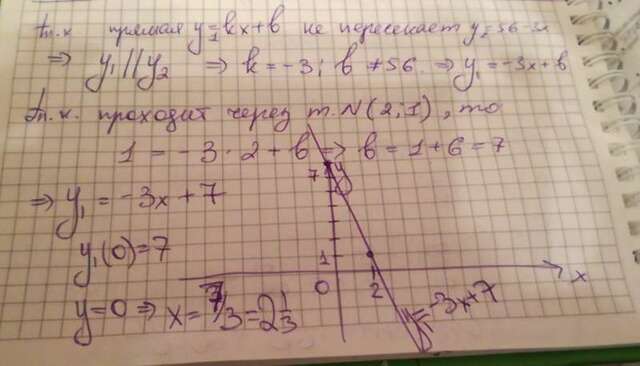 Т.к прямая y₁=kx+b не пересекает y₂=56-3x
⇒ y₁ // y₂ ⇒ k = -3; b ≠ 56 ⇒ y₁ = -3x+b
Т.к. проходит через т. N (2; 1), то
1 = -3 · 2 + b ⇒ b = 1+6 = 7
⇒ y₁ = -3x + 7
y₁(0) = 7
y=0 ⇒ x = 7/3 = 2 1/3
7 y
1
0 2 x
y=-3x+7